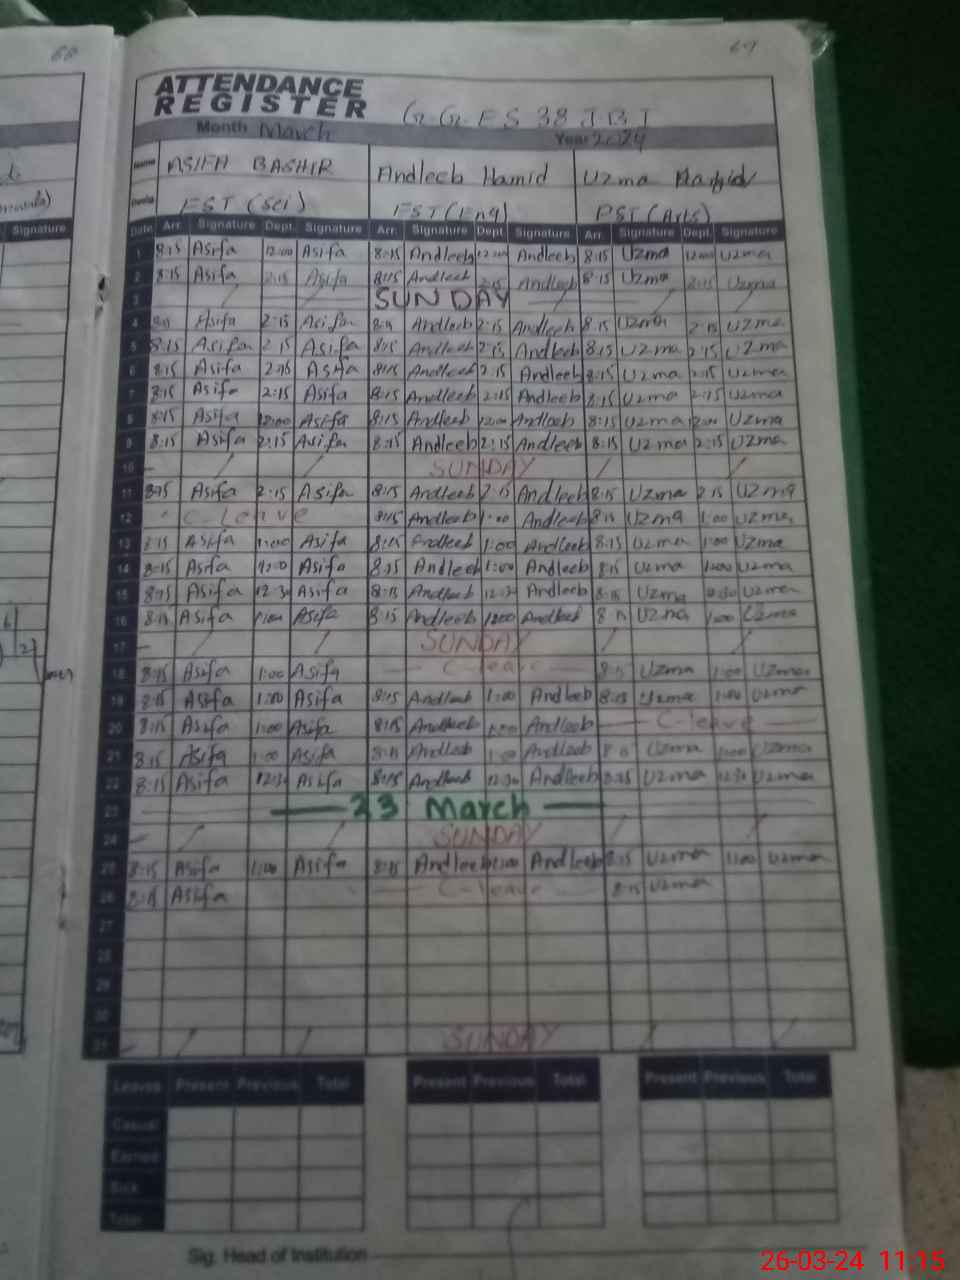 68
67
ATTENDANCE
REGISTER G.G.E.S 38 J B J
Month March Year 2024
Name ASIFA BASHIR Andleeb Hamid Uzma
EST (Sci) EST (Eng) PST (Arts)
Signature
Date Arr. Signature Dept. Signature Arr. Signature Dept. Signature Arr. Signature Dept. Signature
1 8:15 Asifa 12:00 Asifa 8:15 Andleeb 12:00 Andleeb 8:15 Uzma 12:00 Uzma
2 8:15 Asifa 2:15 Asifa 8:15 Andleeb 2:15 Andleeb 8:15 Uzma 2:15 Uzma
3 SUNDAY
4 Asifa 2:15 Asifa Andleeb 2:15 Andleeb 8:15 Uzma 2:15 Uzma
5 8:15 Asifa 2:15 Asifa 8:15 Andleeb 2:15 Andleeb 8:15 Uzma 2:15 Uzma
6 8:15 Asifa 2:15 Asifa 8:15 Andleeb 2:15 Andleeb 8:15 Uzma 2:15 Uzma
7 8:15 Asifa 2:15 Asifa 8:15 Andleeb 2:15 Andleeb 8:15 Uzma 2:15 Uzma
8 8:15 Asifa 12:00 Asifa 8:15 Andleeb 12:00 Andleeb 8:15 Uzma 12:00 Uzma
9 8:15 Asifa 2:15 Asifa 8:15 Andleeb 2:15 Andleeb 8:15 Uzma 2:15 Uzma
10 SUNDAY
11 8:15 Asifa 2:15 Asifa 8:15 Andleeb 2:15 Andleeb 8:15 Uzma 2:15 Uzma
12 C-Leave 8:15 Andleeb 1:00 Andleeb 8:15 Uzma 1:00 Uzma
13 8:15 Asifa 1:00 Asifa 8:15 Andleeb 1:00 Andleeb 8:15 Uzma 1:00 Uzma
14 8:15 Asifa 1:00 Asifa 8:15 Andleeb 1:00 Andleeb 8:15 Uzma 1:00 Uzma
15 8:15 Asifa 12:30 Asifa 8:15 Andleeb 12:30 Andleeb 8:15 Uzma 12:30 Uzma
16 8:15 Asifa 1:00 Asifa 8:15 Andleeb 1:00 Andleeb Uzma 1:00 Uzma
17 SUNDAY
18 8:15 Asifa 1:00 Asifa C-leave 8:15 Uzma 1:00 Uzma
19 8:15 Asifa 1:00 Asifa 8:15 Andleeb 1:00 Andleeb 8:15 Uzma 1:00 Uzma
20 8:15 Asifa 1:00 Asifa 8:15 Andleeb 1:00 Andleeb C-leave
21 8:15 Asifa 1:00 Asifa 8:15 Andleeb 1:00 Andleeb 8:15 Uzma 1:00 Uzma
22 8:15 Asifa 12:30 Asifa 8:15 Andleeb 12:30 Andleeb 8:15 Uzma 12:30 Uzma
23 23 March
24 SUNDAY
25 8:15 Asifa 1:00 Asifa 8:15 Andleeb 1:00 Andleeb 8:15 Uzma 1:00 Uzma
26 8:15 Asifa C-leave 8:15 Uzma
27
28
29
30
31 SUNDAY
Leaves Present Previous Total Present Previous Total Present Previous Total
Casual
Earned
Sick
Total
Sig. Head of Institution
26-03-24 11:15